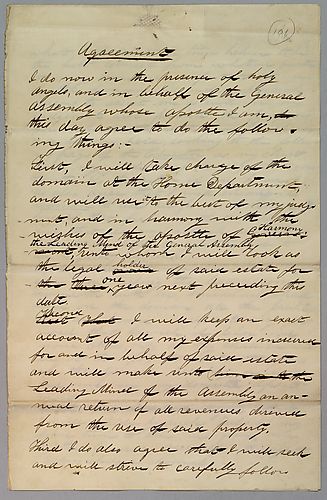 101
Agreement
I do now in the presence of holy
angels, and in behalf of the General
Assembly whose apostle I am,
this day agree to do the follow-
ing things:-
First, I will take charge of the
domain at the Home Department,
and will use to the best of my judg-
ment, and in harmony with the
Harmony
wishes of the apostle of
the Leading Mind of the General Assembly
unto whom I will look as
the legal holder of said estate for
one year next preceding this
date
Second I will keep an exact
account of all my expenses incurred
for and in behalf of said estate
and will make unto him as the
Leading Mind of the Assembly an an-
nual return of all revenues derived
from the use of said property.
Third I do also agree that I will seek
and will strive to carefully follow